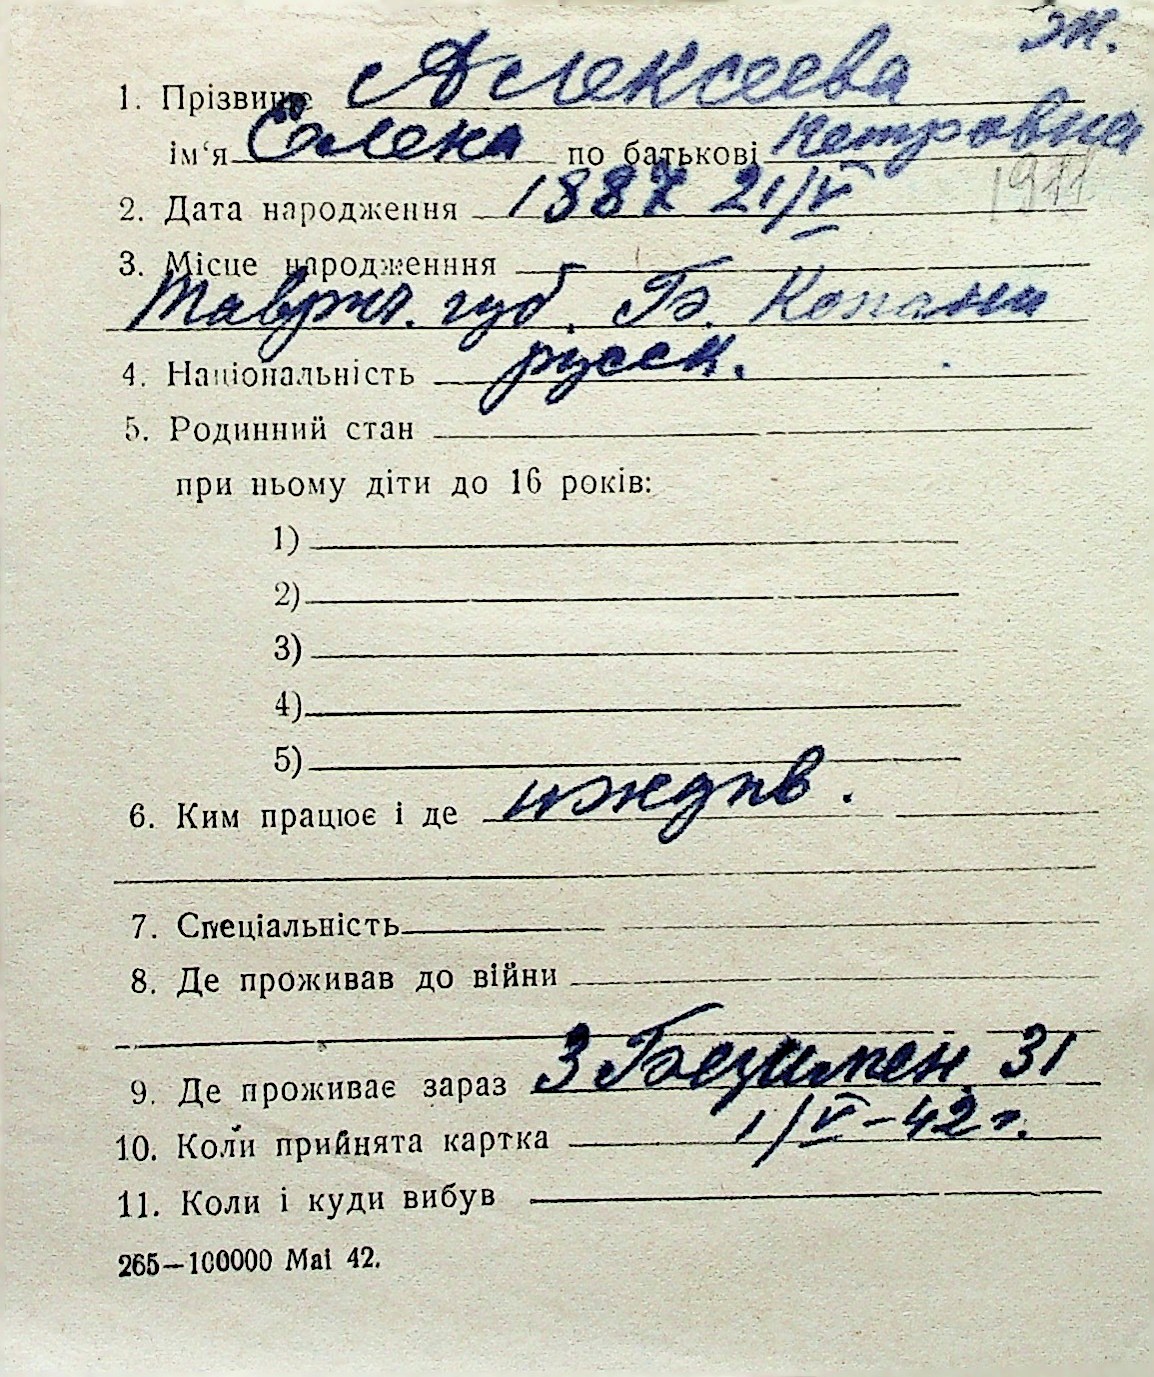 ж.
1. Прізвище Алексеева
ім'я Елена по батькові Петровна
1911
2. Дата народження 1887 21/V
3. Місце народженння
Таврич. губ. Б. Копани
4. Національність русск.
5. Родинний стан
при ньому діти до 16 років:
1)
2)
3)
4)
5)
6. Ким працює і де иждив.
7. Спеціальність
8. Де проживав до війни
9. Де проживає зараз 3 Безимен. 31
10. Коли прийнята картка 1/V-42 г.
11. Коли і куди вибув
265—100000 Mai 42.